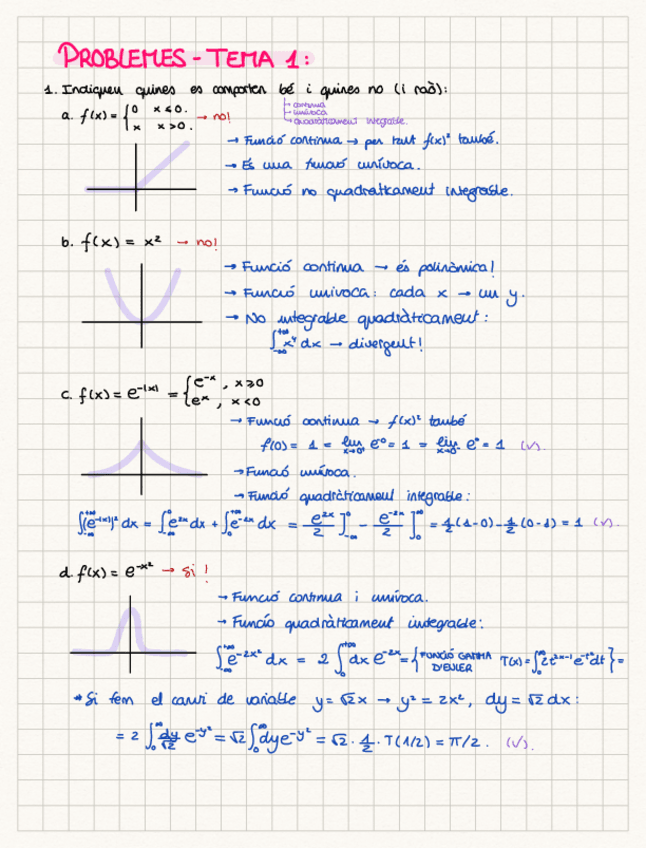 PROBLEMES - TEMA 1:
1. Indiqueu quines es comporten bé i quines no (i raó):
contínua
unívoca
quadràticament integrable.
a. f(x) = { 0 x ≤ 0. x x > 0. → no!
→ Funció contínua → per tant f(x)² també.
→ És una funció unívoca.
→ Funció no quadràticament integrable.
b. f(x) = x² → no!
→ Funció contínua → és polinòmica!
→ Funció unívoca: cada x → un y.
→ No integrable quadràticament:
∫_{-∞}^{+∞} x⁴ dx → divergent!
c. f(x) = e^{-|x|} = { e^{-x}, x ≥ 0 e^{x}, x < 0
→ Funció contínua → f(x)² també
f(0) = 1 = lim_{x→0⁺} e⁰ = 1 = lim_{x→0⁻} e⁰ = 1 (√).
→ Funció unívoca.
→ Funció quadràticament integrable:
∫_{-∞}^{+∞} (e^{-|x|})² dx = ∫_{-∞}^{0} e^{2x} dx + ∫_{0}^{∞} e^{-2x} dx = e^{2x}/2 ]_{-∞}^{0} - e^{-2x}/2 ]_{0}^{∞} = 1/2 (1-0) - 1/2 (0-1) = 1 (√).
d. f(x) = e^{-x²} → sí!
→ Funció contínua i unívoca.
→ Funció quadràticament integrable:
∫_{-∞}^{+∞} e^{-2x²} dx = 2 ∫_{0}^{+∞} dx e^{-2x} = { FUNCIÓ GAMMA D'EULER T(x) = ∫_{0}^{∞} 2t^{2x-1} e^{-t²} dt } =
* Si fem el canvi de variable y = √2 x → y² = 2x², dy = √2 dx:
= 2 ∫_{0}^{∞} dy/√2 e^{-y²} = √2 ∫_{0}^{∞} dy e^{-y²} = √2 · 1/2 · T(1/2) = π/2. (√).